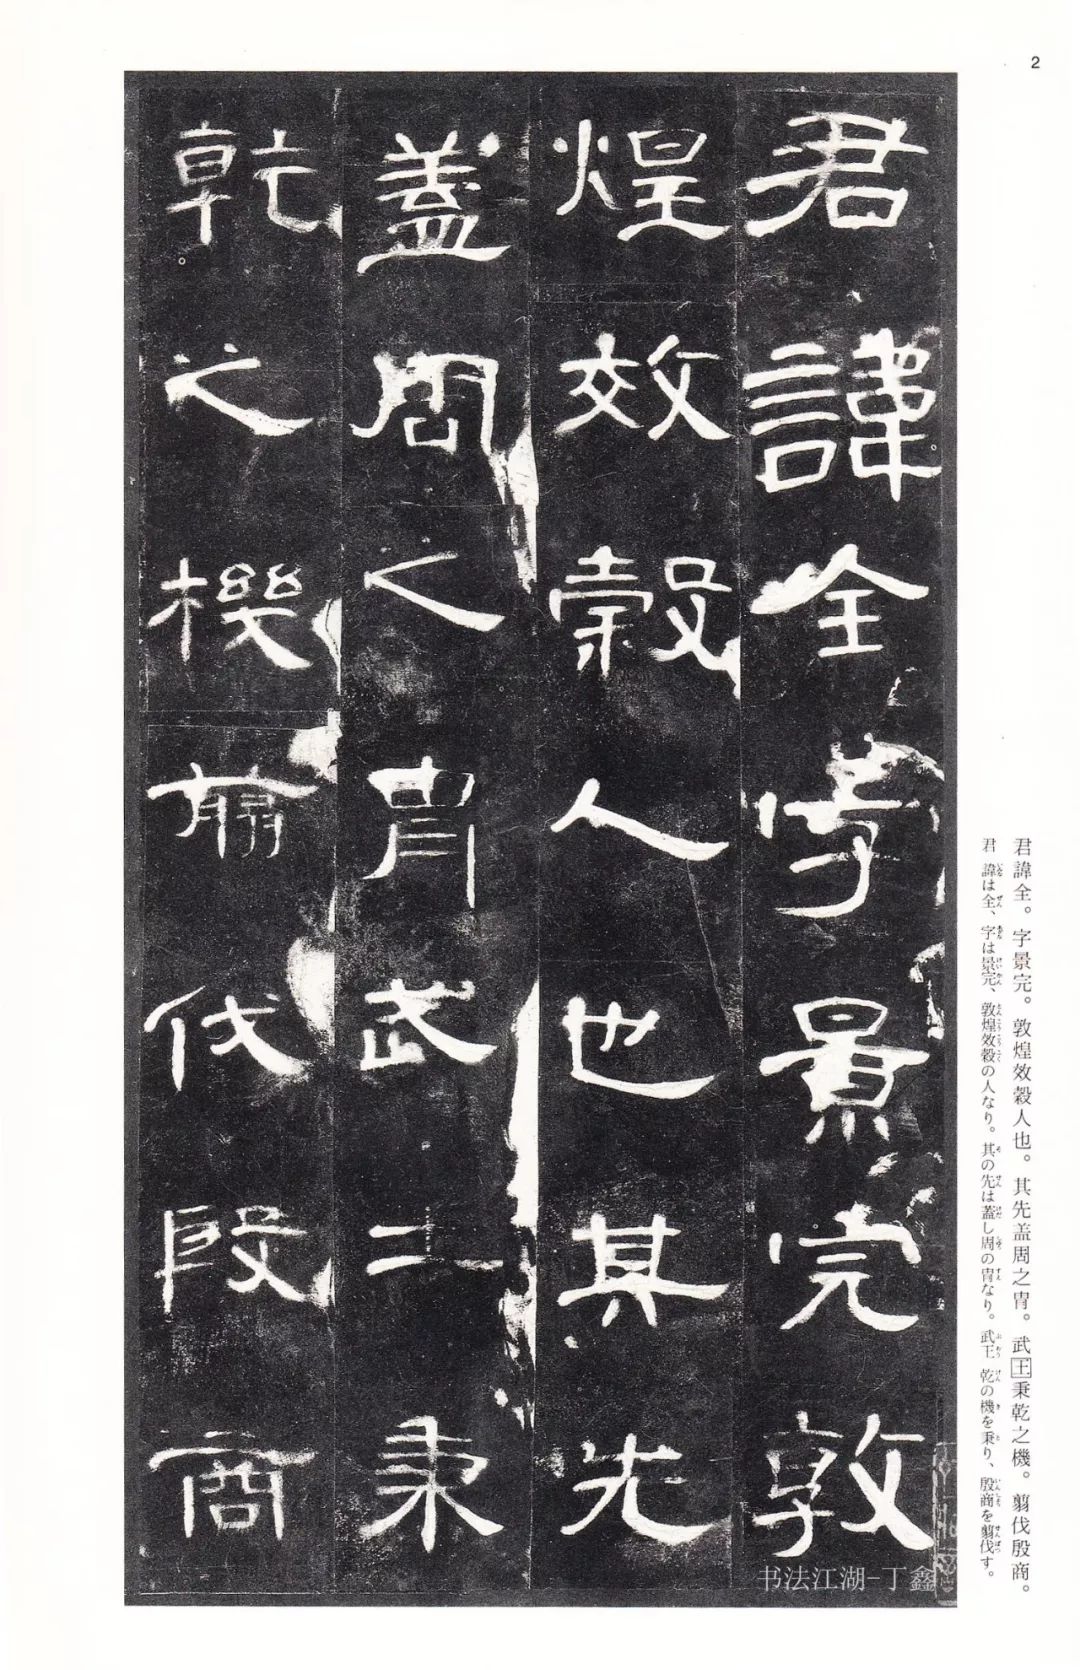 2
君諱全字景完敦
煌效穀人也其先
蓋周之胄武王秉
乾之機翦伐殷商
君諱全。字景完。敦煌效穀人也。其先盖周之胄。武王秉乾之機。翦伐殷商。
君諱は全、字は景完、敦煌效穀の人なり。其の先は蓋し周の胄なり。武王乾の機を秉り、殷商を翦伐す。
书法江湖-丁鑫